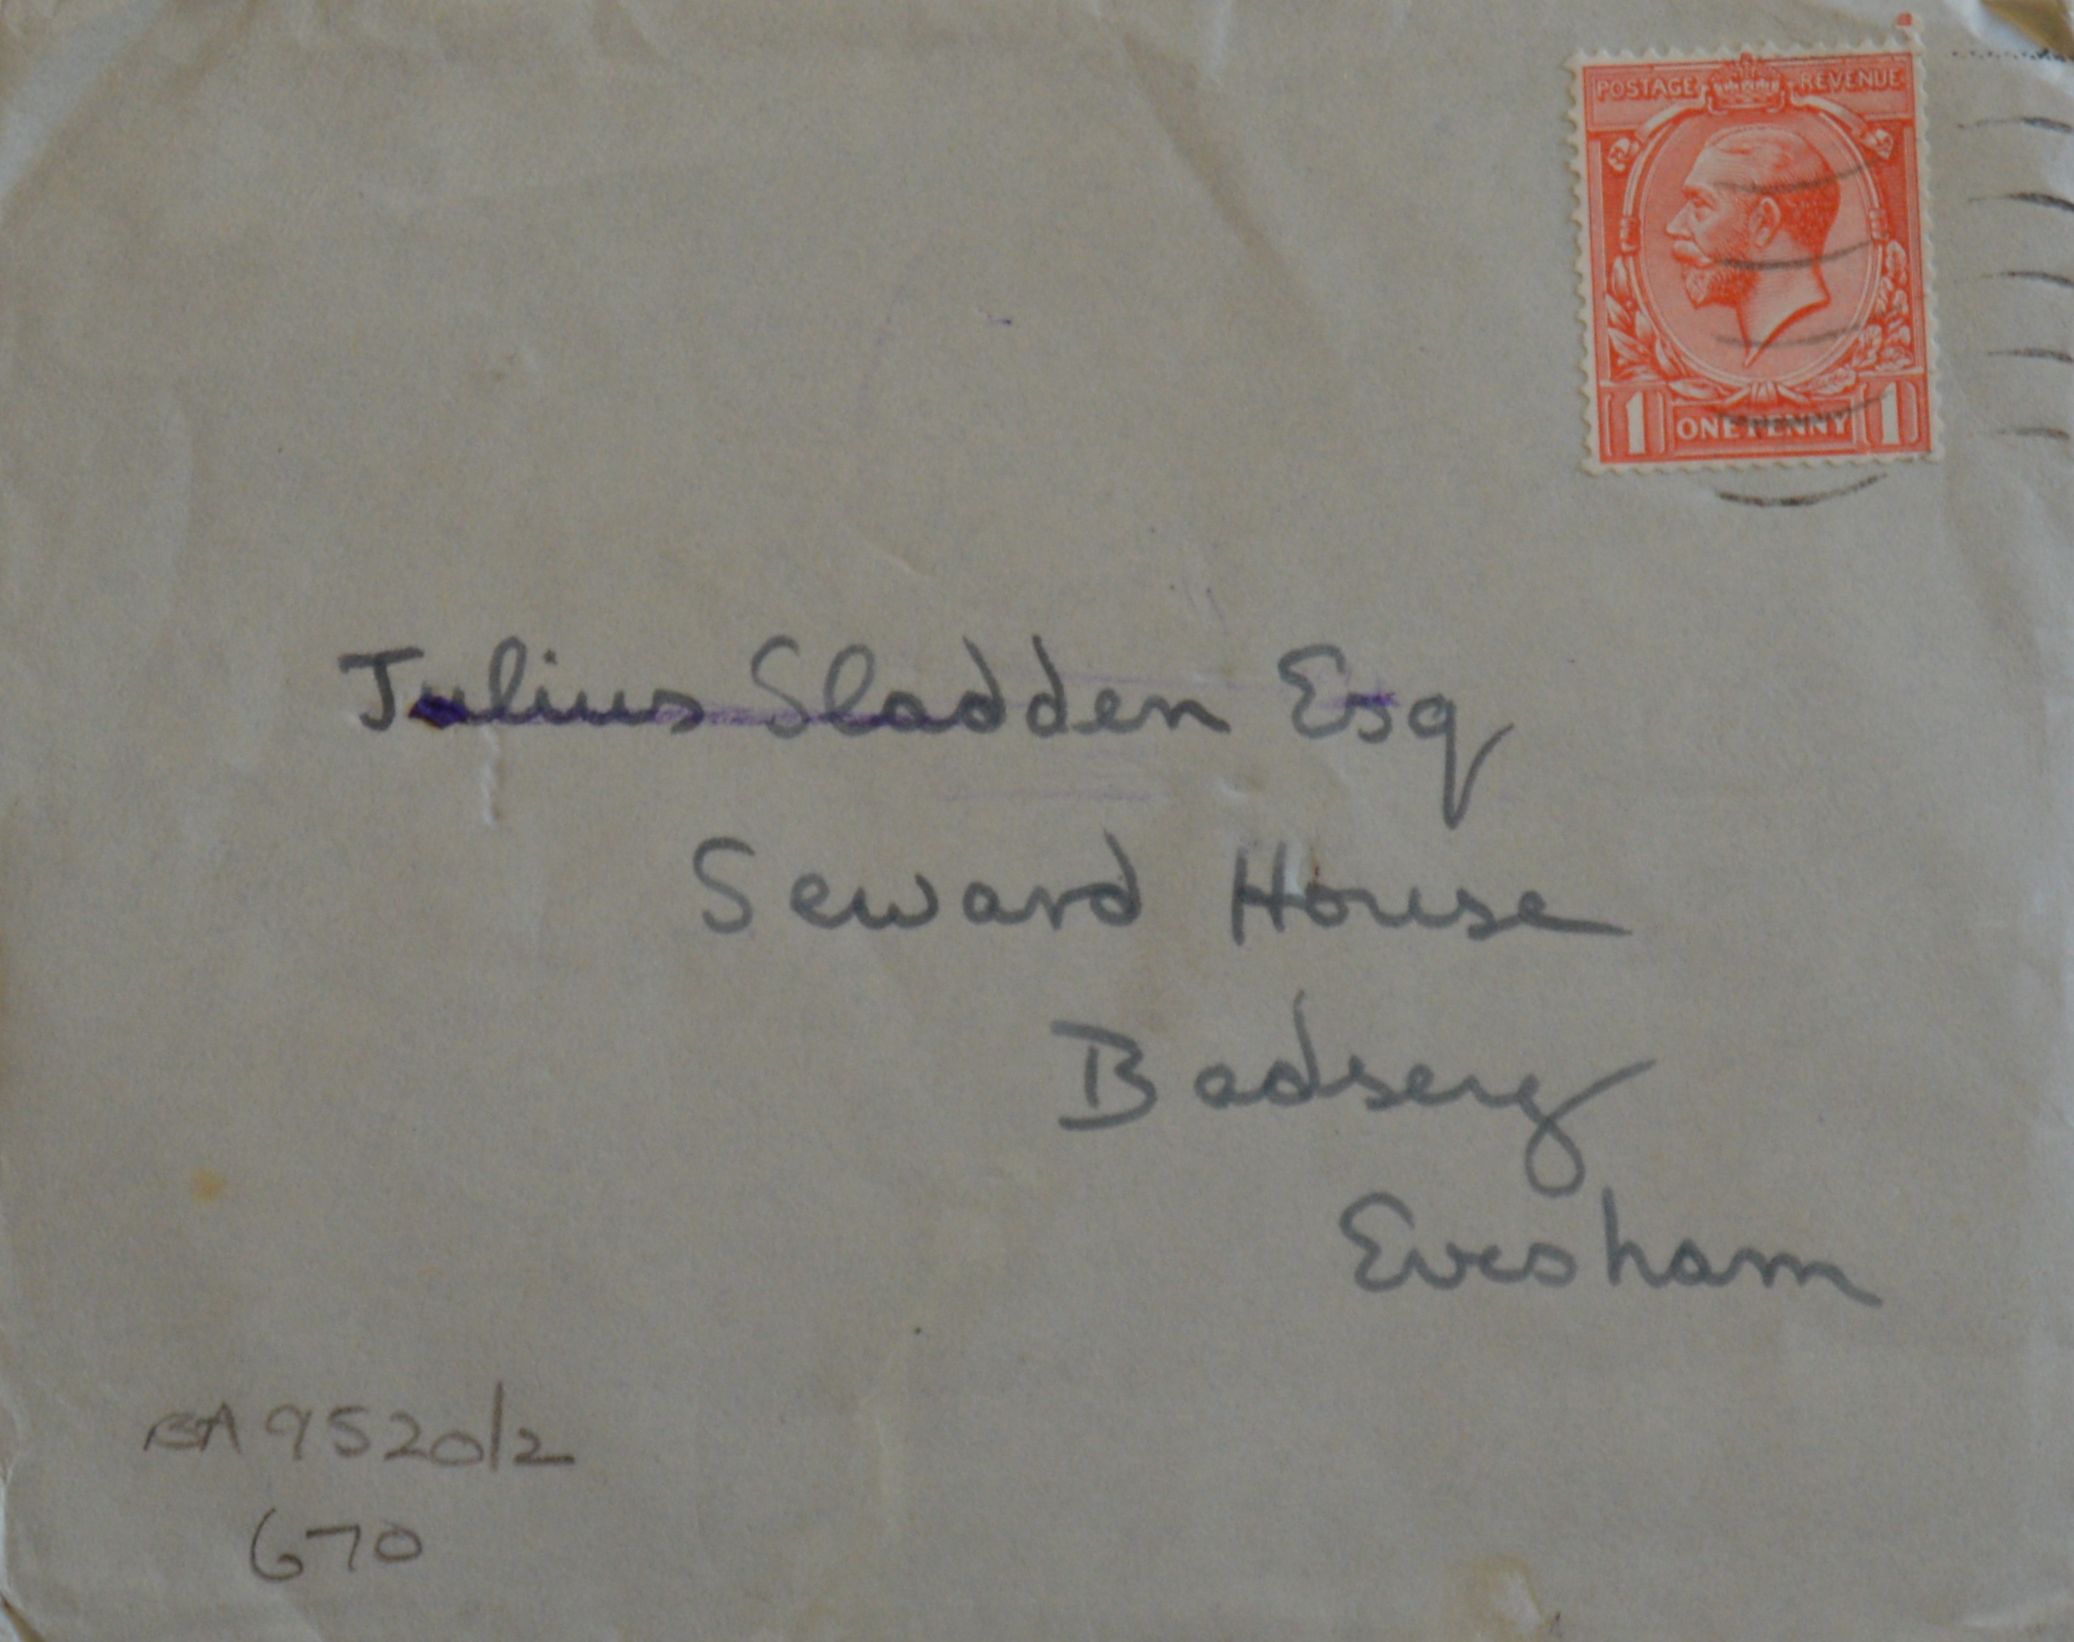 POSTAGE REVENUE
1 ONE PENNY 1
Julius Sladden Esq
Seward House
Badsey
Evesham
BA 9520/2
670